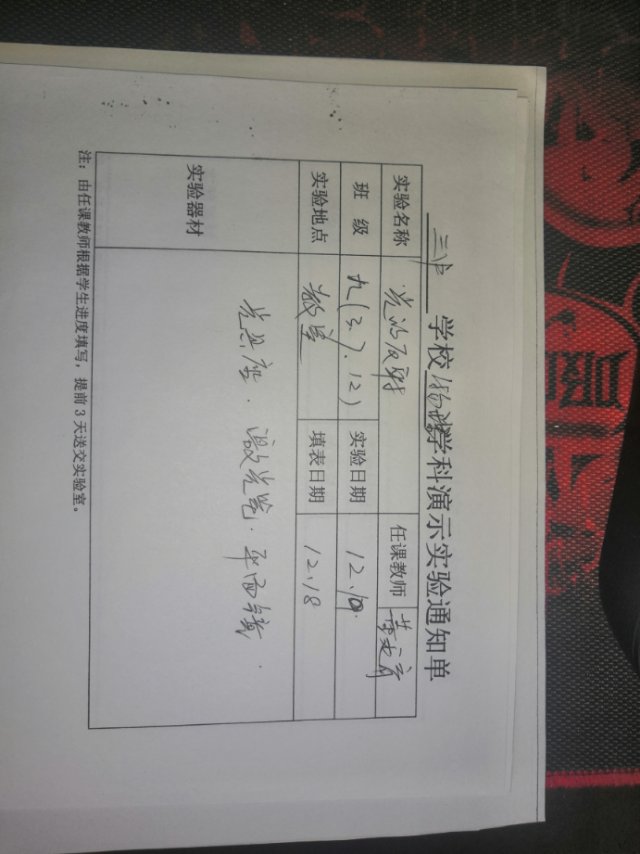 三中 学校 物理 学科演示实验通知单
实验名称 光的反射 任课教师
班 级 九(3.7.12) 实验日期
实验地点 教室 填表日期 12.18
实验器材 光具座. 激光笔. 平面镜.
注：由任课教师根据学生进度填写，提前3天送交实验室。